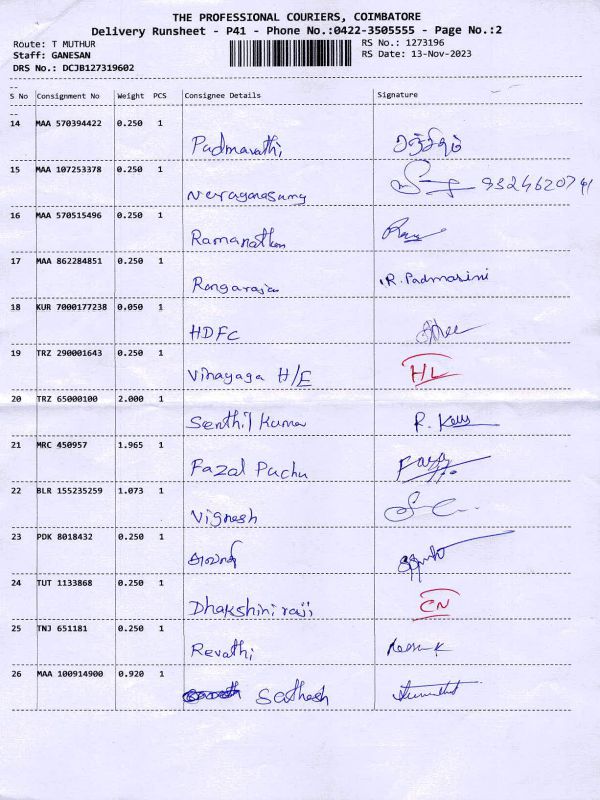 THE PROFESSIONAL COURIERS, COIMBATORE
Delivery Runsheet - P41 - Phone No.:0422-3505555 - Page No.:2
Route: T MUTHUR RS No.: 1273196
Staff: GANESAN RS Date: 13-Nov-2023
DRS No.: DCJB127319602
S No Consignment No Weight PCS Consignee Details Signature
14 MAA 570394422 0.250 1
Padmavathi
15 MAA 107253378 0.250 1
9324620741
16 MAA 570515496 0.250 1
Ramanathan
17 MAA 862284851 0.250 1
Rangaraja R. Padmasini
18 KUR 7000177238 0.050 1
HDFC
19 TRZ 290001643 0.250 1
Vinayaga H/E HL
20 TRZ 65000100 2.000 1
Senthil Kumar
21 MRC 450957 1.965 1
Fazal Pachu
22 BLR 155235259 1.073 1
Vignesh
23 PDK 8018432 0.250 1
24 TUT 1133868 0.250 1
Dhakshini raji CN
25 TNJ 651181 0.250 1
Revathi
26 MAA 100914900 0.920 1
Sathesh